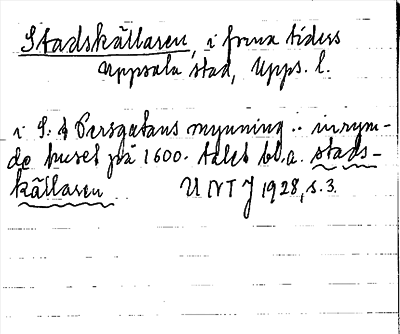 Stadskällaren, i forna tiders
Uppsala stad, Upps. l.
i S:t Persgatans mynning .. inrym-
de huset på 1600-talet bl.a. stads-
källaren UNTJ 1928, s. 3.